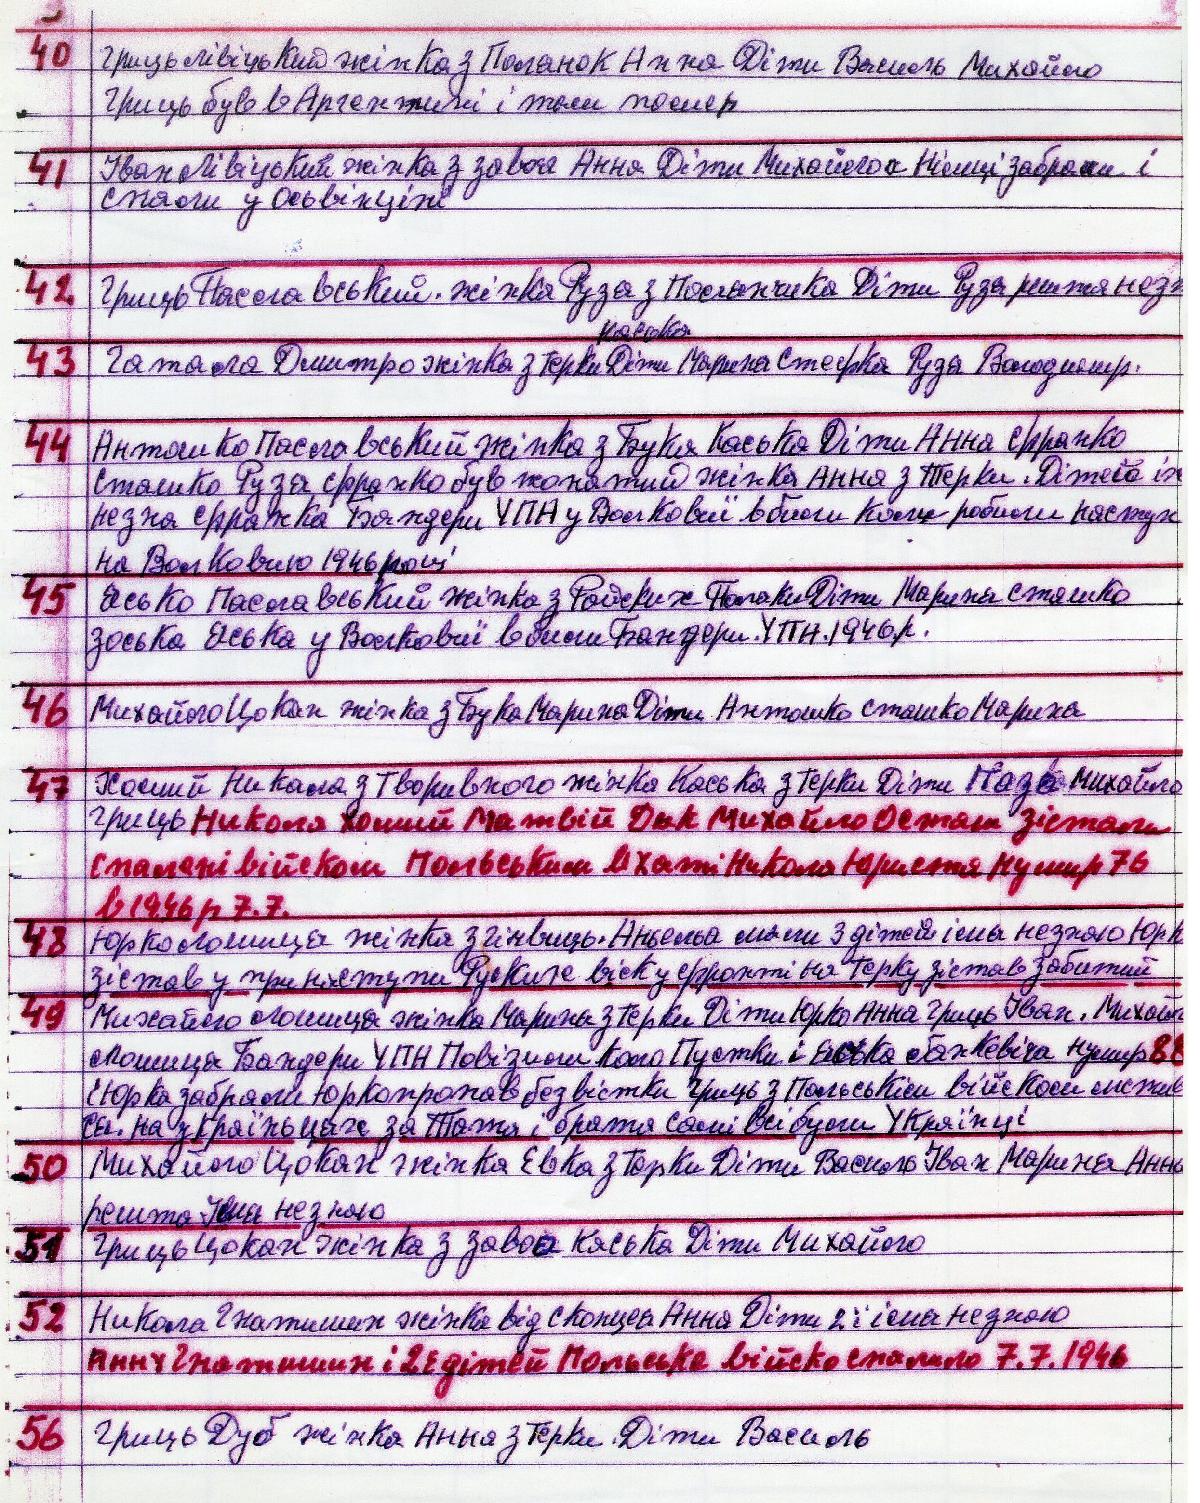 40 Гриць Лівіцький жінка з Поланок Анна Діти Василь Михайло
Гриць був в Аргентині і там помер
41 Іван Лівіцький жінка з завоя Анна Діти Михайло Німці забрали і
спали у Освінцім
42 Гриць Паславський. жінка Руза з Поланчика Діти Руза решта незн
каська
43 Гатала Дмитро жінка з Терки Діти Марина Стефка Руза Володимир.
44 Анташко Паславський жінка з Бука Каська Діти Анна Франко
Сташко Руза Франко був жонатий жінка Анна з Терки. Дітей їх
незна Франка Бандери УПН у Волковиї вбили коли робили наступ
на Волковию 1946 році
45 Юсько Паславський жінка з Райских Поляки Діти Марина Сташко
Зоська Юська у Волковиї вбили Бандери. УПН. 1946р.
46 Михайло Цокан жінка з Бука Марина Діти Анташко Сташко Марина
47 Хомий Никола з Творивного жінка Каська з Терки Діти Паза Михайло
Гриць Никола Хомий Матвій Дик Михайло Осташ зістали
спалені війском Польським в хаті Никола Юристя Нумир 76
в 1946р 7.7.
48 Юрко ломица жінка з гінвиць. Аньєльа мали 3 дітей імя незнаю Юрк
зістав у при наступи Руских віск у фронті на Терку зістав забитий
49 Михайло ломица жінка Марина з Терки Діти Юрко Анна Гриць Іван. Михайл
ломица Бандери УПН Повізили коло Пустки і Юська Станкевіча нумир 88
і Юрка забрали Юрко пропав без вістки Гриць з Польськім війском мстив
ся. на українцах за Тата і брата самі всі були Українці
50 Михайло Цокан жінка Евка з Терки Діти Василь Іван Марина Анна
решта Імя незнаю
51 Гриць Цокан жінка з завоа Каська Діти Михайло
52 Никола Гнатишин жінка від сконцеа Анна Діти 2і імя незнаю
Анну Гнатишин і 2Е дітей Польське війско спалило 7.7.1946
56 Гриць Дуб жінка Анна з Терки. Діти Василь